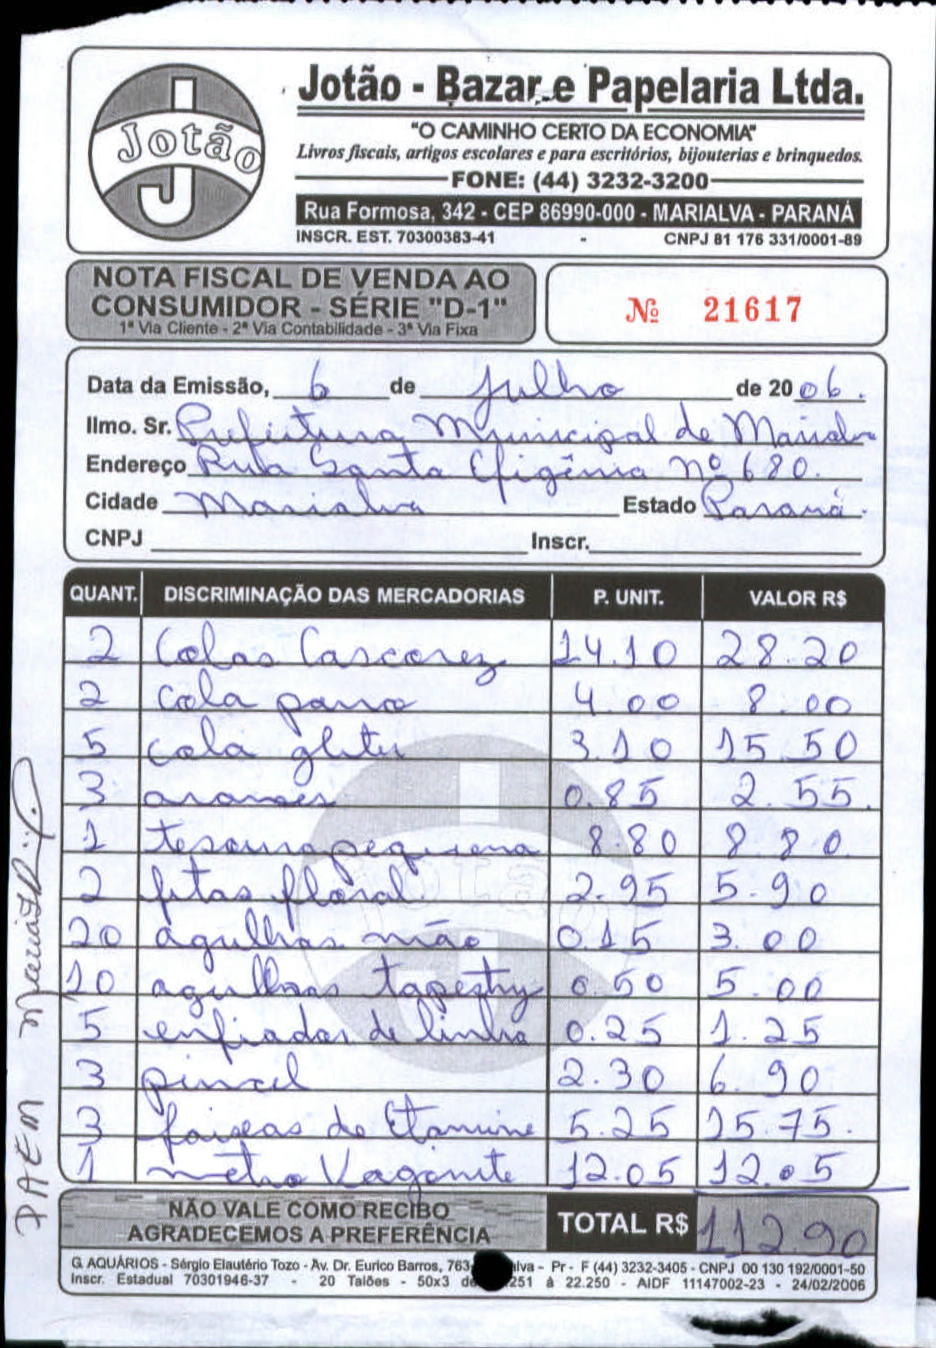 Jotão
Jotão - Bazar e Papelaria Ltda.
"O CAMINHO CERTO DA ECONOMIA"
Livros fiscais, artigos escolares e para escritórios, bijouterias e brinquedos.
FONE: (44) 3232-3200
Rua Formosa, 342 - CEP 86990-000 - MARIALVA - PARANÁ
INSCR. EST. 70300383-41 - CNPJ 81 176 331/0001-89
NOTA FISCAL DE VENDA AO
CONSUMIDOR - SÉRIE "D-1"
1ª Via Cliente - 2ª Via Contabilidade - 3ª Via Fixa
Nº 21617
Data da Emissão, 6 de Julho de 2006.
Ilmo. Sr. Prefeitura Municipal de Marialva
Endereço Rua Santa Efigênia nº 680.
Cidade Marialva Estado Paraná.
CNPJ Inscr.
QUANT. DISCRIMINAÇÃO DAS MERCADORIAS P. UNIT. VALOR R$
2 Colas Cascorez 14.10 28.20
2 cola pano 4.00 8.00
5 cola gliter 3.10 15.50
3 0.85 2.55.
1 tesoura pequena 8.80 8.80.
2 fitas floral 2.95 5.90
20 agulhas mão 0.15 3.00
10 agulhas tapestry 0.50 5.00
5 enfiador de linha 0.25 1.25
3 pincel 2.30 6.90
3 faixas de Etamine 5.25 15.75.
1 metro Vagonite 12.05 12.05
NÃO VALE COMO RECIBO
AGRADECEMOS A PREFERÊNCIA
TOTAL R$ 112.90
G. AQUÁRIOS - Sérgio Elautério Tozo - Av. Dr. Eurico Barros, 763 lva - Pr - F (44) 3232-3405 - CNPJ 00 130 192/0001-50
Inscr. Estadual 70301946-37 - 20 Talões - 50x3 de 251 á 22.250 - AIDF 11147002-23 - 24/02/2006
PAEM